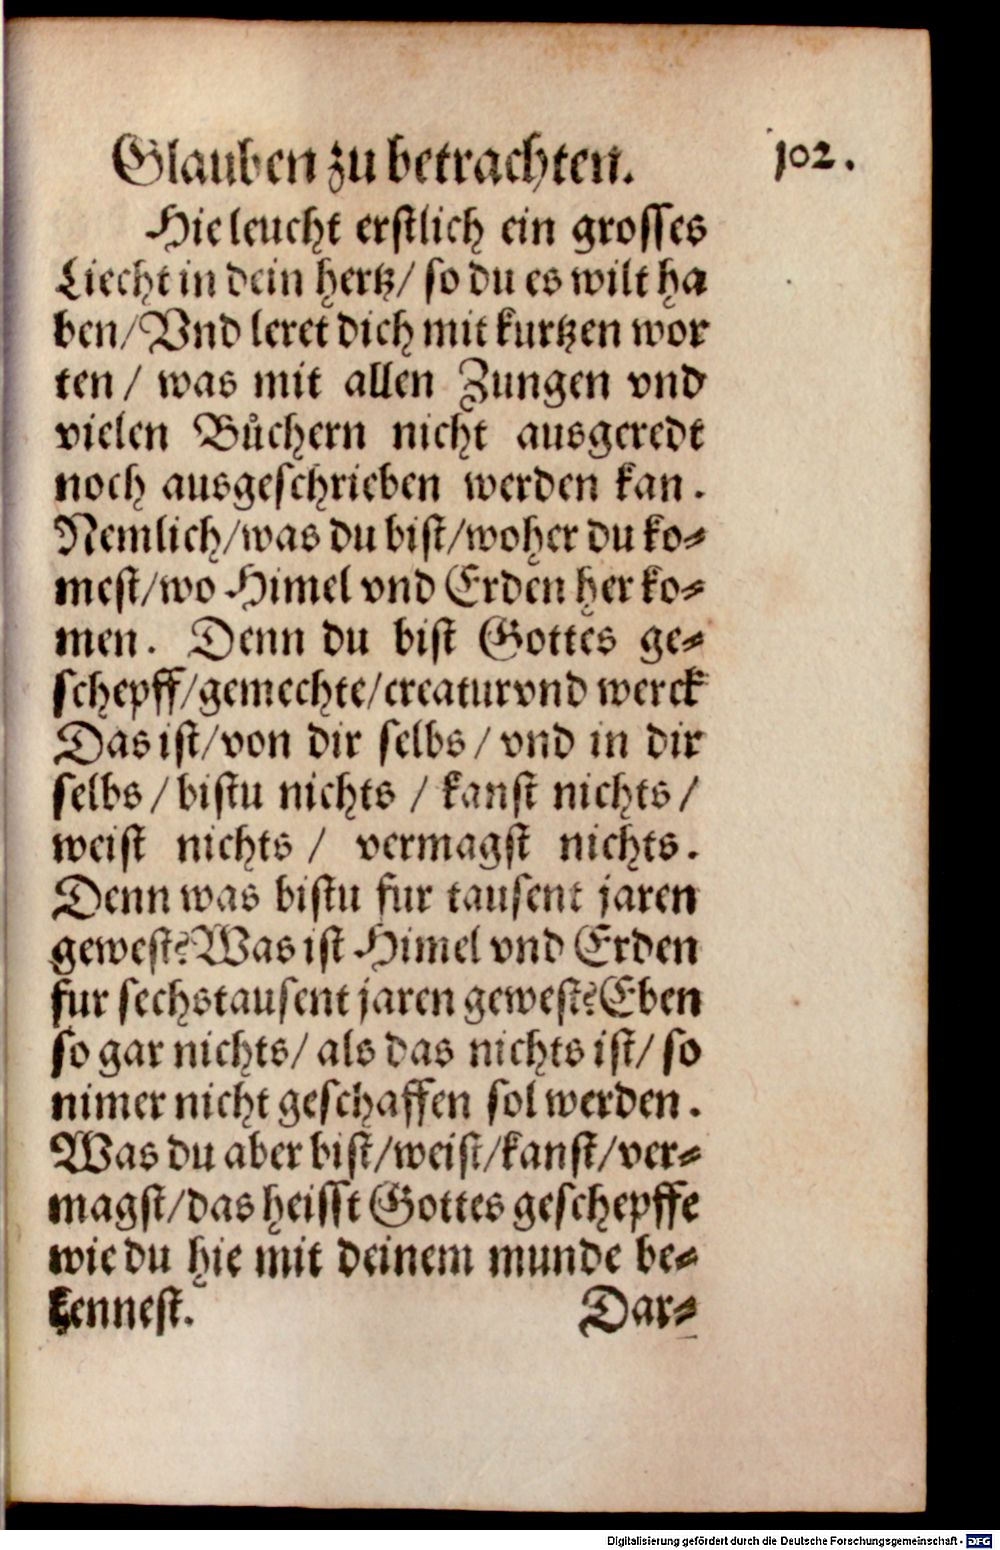 Glauben zu betrachten. 102.
Hie leucht erstlich ein grosses
Liecht in dein hertz/ so du es wilt ha
ben/ Vnd leret dich mit kurtzen wor
ten / was mit allen Zungen vnd
vielen Bůchern nicht ausgeredt
noch ausgeschrieben werden kan.
Nemlich/was du bist/woher du ko-
mest/wo Himel vnd Erden her ko-
men. Denn du bist Gottes ge-
schepff/gemechte/creatur vnd werck
Das ist/von dir selbs / vnd in dir
selbs / bistu nichts / kanst nichts /
weist nichts / vermagst nichts.
Denn was bistu fur tausent jaren
gewest? Was ist Himel vnd Erden
fur sechstausent jaren gewest? Eben
so gar nichts/ als das nichts ist/ so
nimer nicht geschaffen sol werden.
Was du aber bist/weist/kanst/ver-
magst/das heisst Gottes geschepffe
wie du hie mit deinem munde be-
kennest. Dar-
Digitalisierung gefördert durch die Deutsche Forschungsgemeinschaft - DFG